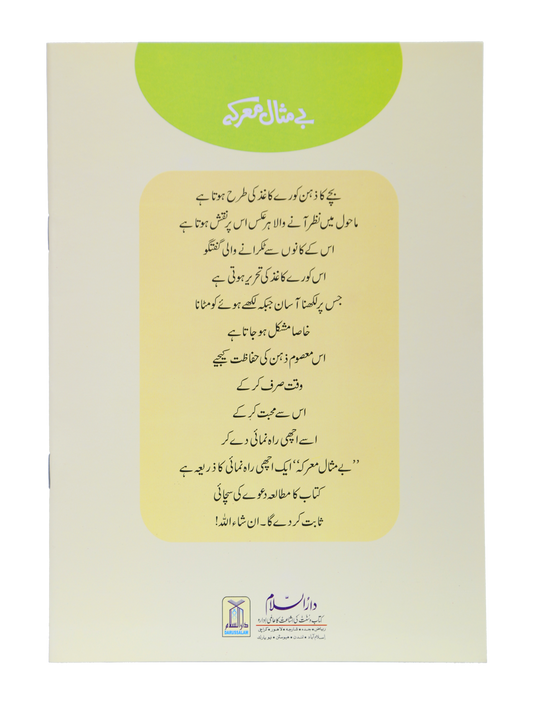 بے مثال معرکہ
بچے کا ذہن کورے کاغذ کی طرح ہوتا ہے
ماحول میں نظر آنے والا ہر عکس اس پر نقش ہوتا ہے
اس کے کانوں سے ٹکرانے والی گفتگو
اس کورے کاغذ کی تحریر ہوتی ہے
جس پر لکھنا آسان جبکہ لکھے ہوئے کو مٹانا
خاصا مشکل ہو جاتا ہے
اس معصوم ذہن کی حفاظت کیجیے
وقت صرف کر کے
اس سے محبت کر کے
اسے اچھی راہ نمائی دے کر
’’بے مثال معرکہ‘‘ ایک اچھی راہ نمائی کا ذریعہ ہے
کتاب کا مطالعہ دعوے کی سچائی
ثابت کر دے گا۔ ان شاء اللہ!
دارالسلام
کتاب و سنت کی اشاعت کا عالمی ادارہ
ریاض • جدہ • شارجہ • لاہور • کراچی
اسلام آباد • لندن • ہیوسٹن • نیو یارک
دارالسلام
DARUSSALAM